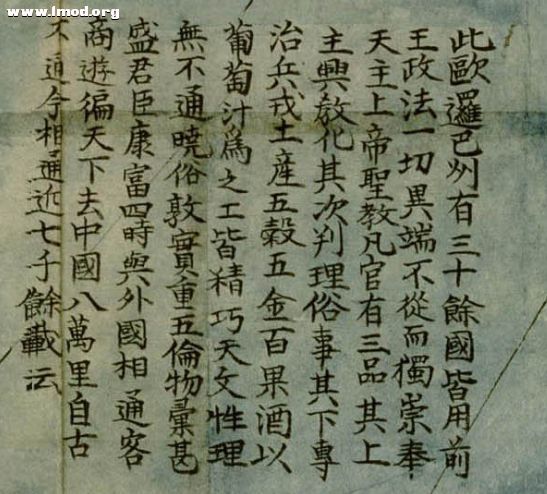 www.lmod.org
此歐邏巴州有三十餘國皆用前
王政法一切異端不從而獨崇奉
天主上帝聖教凡官有三品其上
主興教化其次判理俗事其下專
治兵戎土産五穀五金百果酒以
葡萄汁爲之工皆精巧天文性理
無不通曉俗敦實重五倫物彙甚
盛君臣康富四時與外國相通客
商遊徧天下去中國八萬里自古
不通今相通近七十餘載云